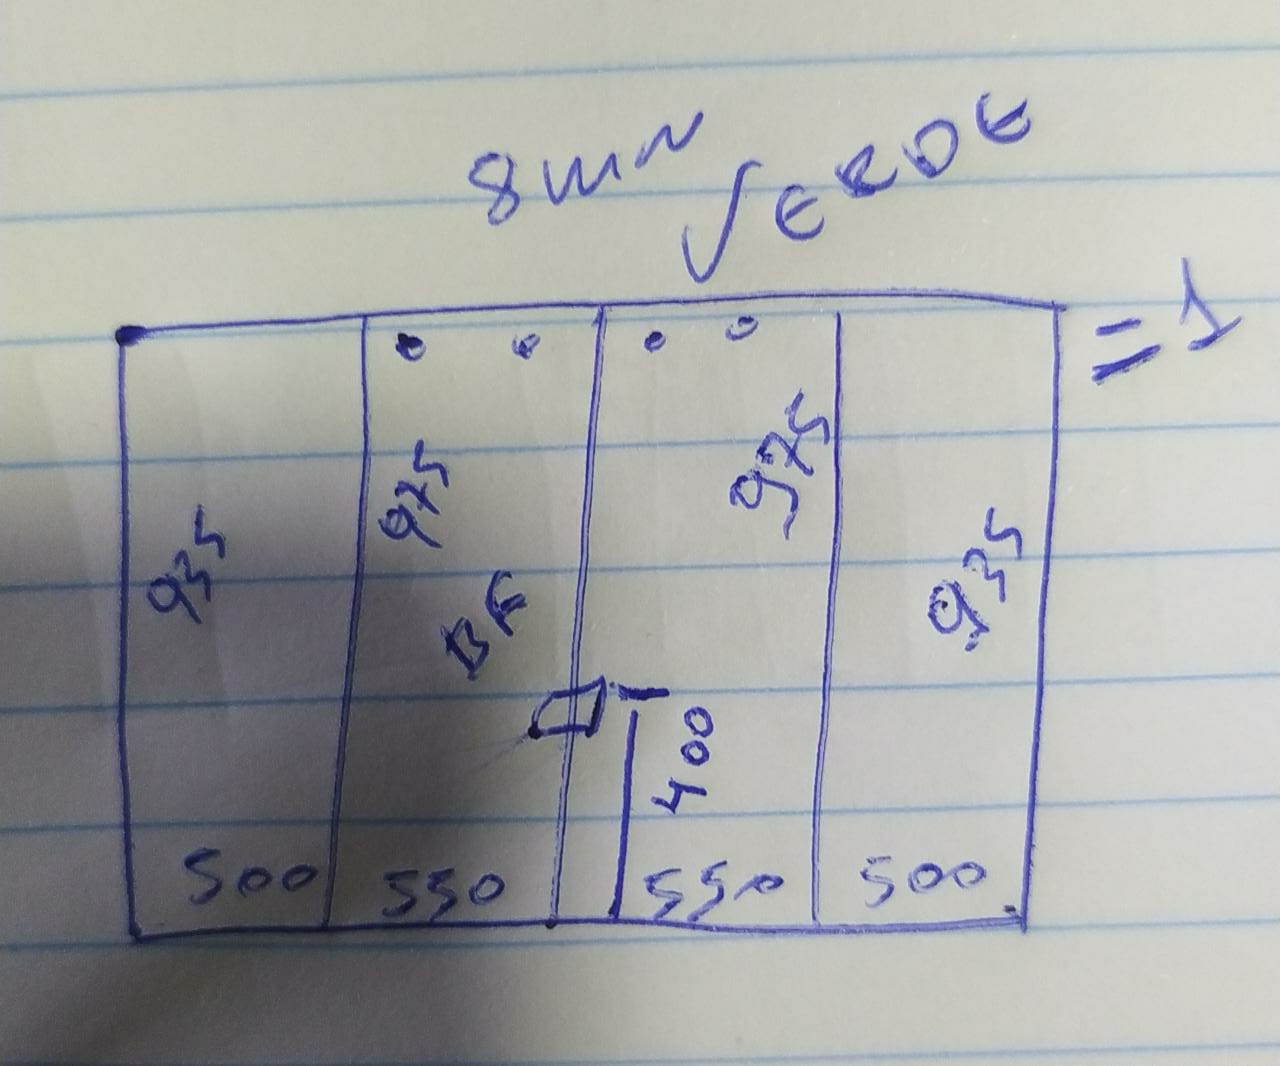 8mm
VERDE
= 1
975
975
935
935
BF
400
500 550 550 500